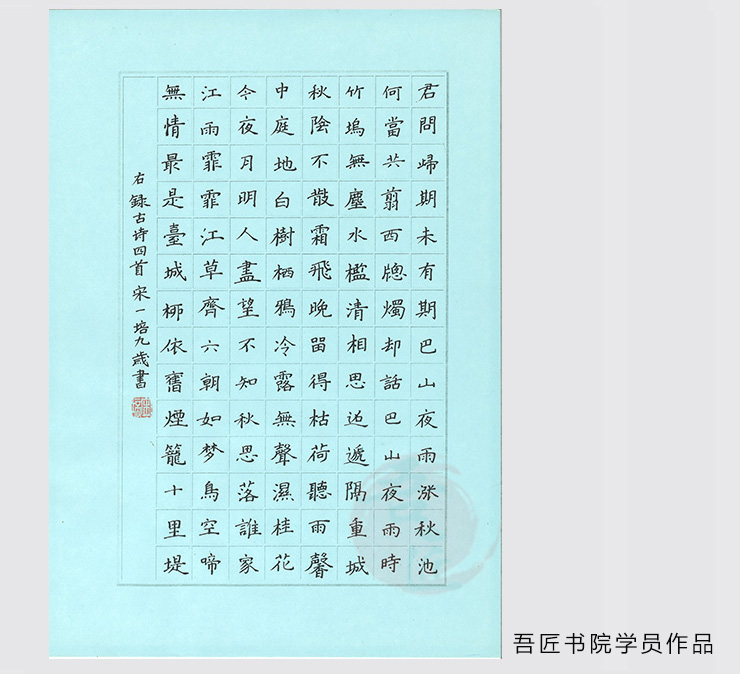 君問歸期未有期巴山夜雨漲秋池
何當共翦西牕燭却話巴山夜雨時
竹塢無塵水檻清相思迢遞隔重城
秋陰不散霜飛晚畱得枯荷聽雨馨
中庭地白樹栖鴉冷露無聲濕桂花
今夜月明人盡望不知秋思落誰家
江雨霏霏江草齊六朝如梦鳥空啼
無情最是臺城柳依舊煙籠十里堤
右錄古诗四首 宋一培九歲書
吾匠书院学员作品